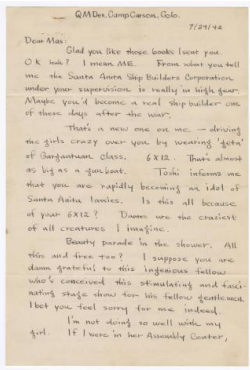 QM Det, Camp Carson, Colo.
7/29/42
Dear Mas:
Glad you like those books I sent you.
O K huh? I mean ME. From what you tell
me the Santa Anita Ship Builders Corporation
under your supervision is really in high gear.
Maybe you'd become a real ship builder one
of these days after the war.
That's a new one on me — driving
the girls crazy over you by wearing 'geta'
of Gargantuan Class, 6x12. That's almost
as big as a gunboat. Toshi informs me
that you are rapidly becoming an idol of
Santa Anita janies. Is this all because
of your 6x12? Dames are the craziest
of all creatures I imagine.
Beauty parade in the shower. All
this and free too? I suppose you are
damn grateful to this ingenious fellow
who's conceived this stimulating and fasci-
nating stage show for his fellow
I bet you feel sorry for me indeed.
I'm not doing so well with my
girl. If I were in her Assembly Center,